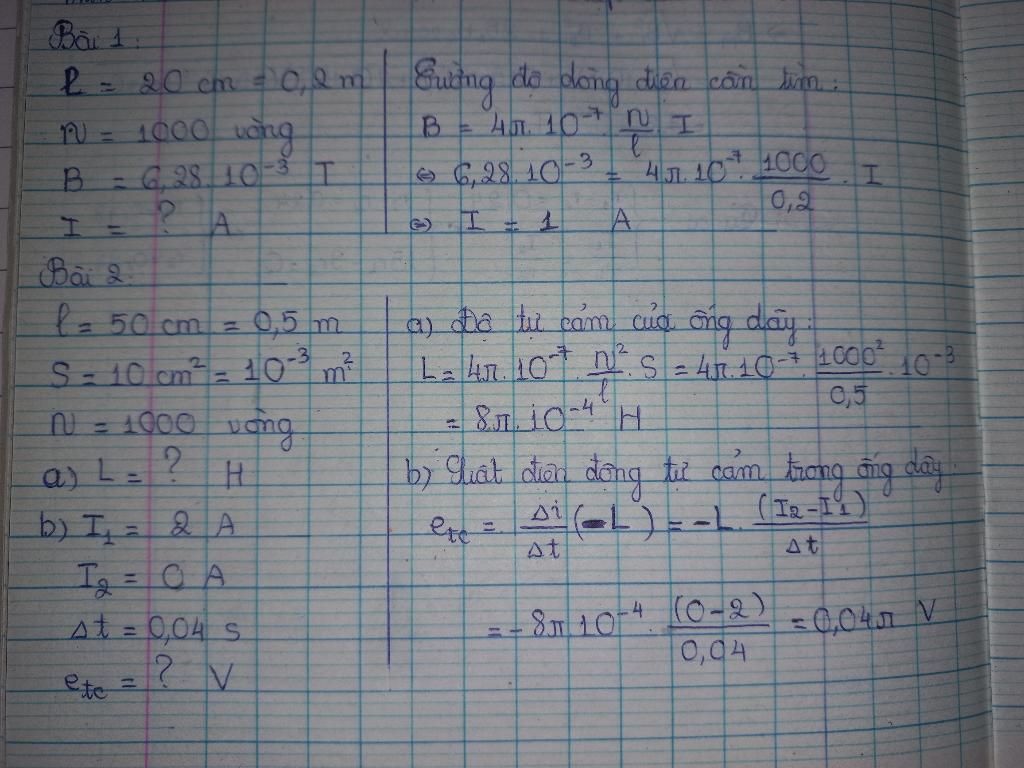 Bài 1:
l = 20 cm = 0,2 m
n = 1000 vòng
B = 6,28.10⁻³ T
I = ? A
Cường độ dòng điện cần tìm:
B = 4π.10⁻⁷. n/l I
⇔ 6,28.10⁻³ = 4π.10⁻⁷. 1000/0,2 . I
⇔ I = 1 A
Bài 2:
l = 50 cm = 0,5 m
S = 10 cm² = 10⁻³ m²
N = 1000 vòng
a) L = ? H
b) I₁ = 2 A
I₂ = 0 A
Δt = 0,04 s
e_tc = ? V
a) Độ tự cảm của ống dây:
L = 4π.10⁻⁷. n²/l . S = 4π.10⁻⁷. 1000²/0,5 . 10⁻³
= 8π.10⁻⁴ H
b) Suất điện động tự cảm trong ống dây.
e_tc = Δi/Δt (-L) = -L. (I₂-I₁)/Δt
= -8π.10⁻⁴. (0-2)/0,04 = 0,04π V